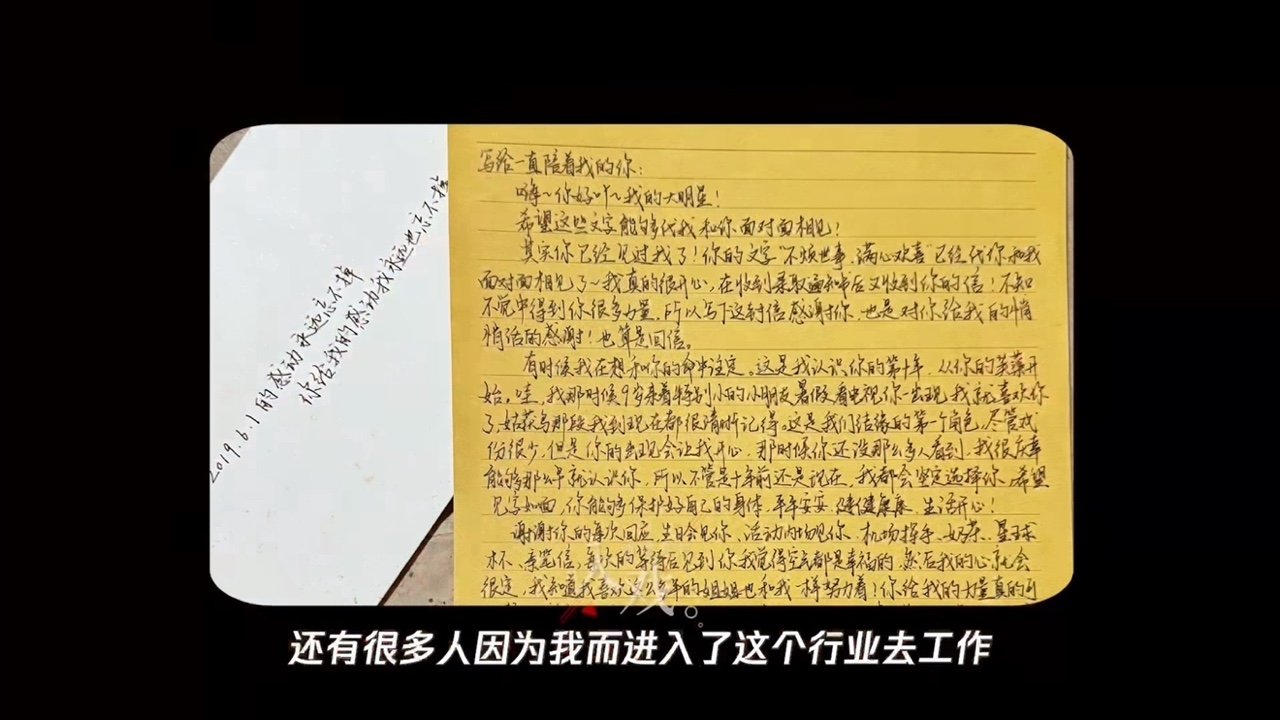 2019.6.1的感动永远忘不掉
你给我的感动我永远也忘不掉
写给一直陪着我的你:
嗨~你好吖~我的大明星!
希望这些文字能够代我和你面对面相见!
其实你已经见过我了!你的文字"不烦世事,满心欢喜"已经代你和我
面对面相见了~我真的很开心,在收到录取通知书后又收到你的信!不知
不觉中得到你很多力量,所以写下这封信感谢你,也是对你给我的悄
悄话的感谢!也算是回信。
有时候我在想和你的命中注定。这是我认识你的第十年,从你的芙蕖开
始。哇,我那时候9岁亲着特别小的小朋友暑假看电视,你一出现我就喜欢你
了,姑获鸟那段我到现在都很清晰记得。这是我们结缘的第一个角色,尽管戏
份很少,但是你的出现会让我开心,那时候你还没那么多人看到,我很庆幸
能够那么早就认识你,所以不管是十年前还是现在,我都会坚定选择你。希望
见字如面,你能够保护好自己的身体,平平安安,健健康康,生活开心!
谢谢你的每次回应,生日会见你、活动内场见你、机场挥手、奶茶、星球
杯、亲笔信,每次的等待后见到你我觉得空气都是幸福的,然后我的心就会
很定,我知道我喜欢这么多年的姐姐也和我一样努力着!你给我的力量真的可
还有很多人因为我而进入了这个行业去工作